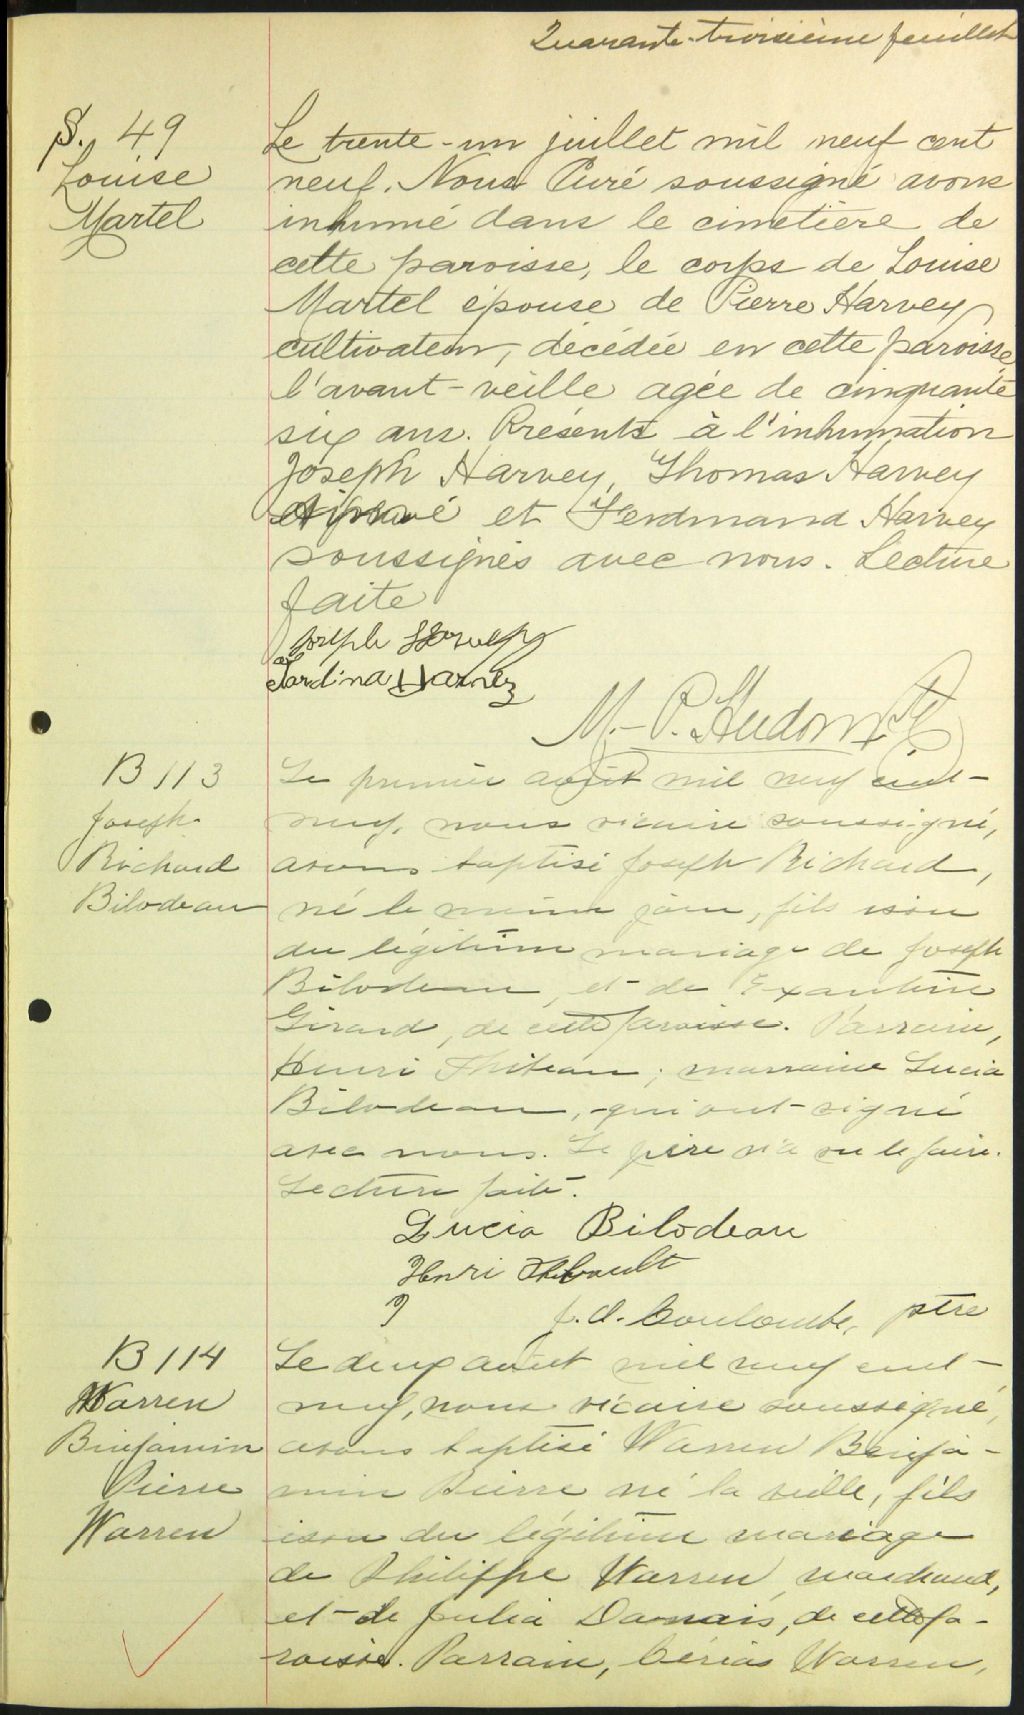 Quarante-troisième feuillet
S. 49
Louise
Martel
Le trente-un juillet mil neuf cent
neuf. Nous Curé soussigné avons
inhumé dans le cimetière de
cette paroisse, le corps de Louise
Martel épouse de Pierre Harvey
cultivateur, décédée en cette paroisse
l'avant-veille agée de cinquante
six ans. Présents à l'inhumation
Joseph Harvey, Thomas Harvey
et Ferdinand Harvey
soussignés avec nous. Lecture
faite
Joseph Harvey
Ferdina Harvey
M.-P. Hudon Ptre
B 113
Joseph
Richard
Bilodeau
Le premier août mil neuf cent-
neuf, nous vicaire soussigné,
avons baptisé Joseph Richard,
né le même jour, fils issu
du légitime mariage de Joseph
Bilodeau, et de Exantine
Girard, de cette paroisse. Parrain,
Henri Thibeau; marraine Lucia
Bilodeau, qui ont signé
avec nous. Le père n'a su le faire.
Lecture faite.
Lucia Bilodeau
Henri Thibault
J. d. Coulombe, ptre
B 114
Warren
Benjamin
Pierre
Warren
Le deux août mil neuf cent-
neuf, nous vicaire soussigné,
avons baptisé Warren Benja-
min Pierre né la veille, fils
issu du légitime mariage
de Philippe Warren, marchand,
et de Julia Damais, de cette pa-
roisse. Parrain, Cérias Warren,